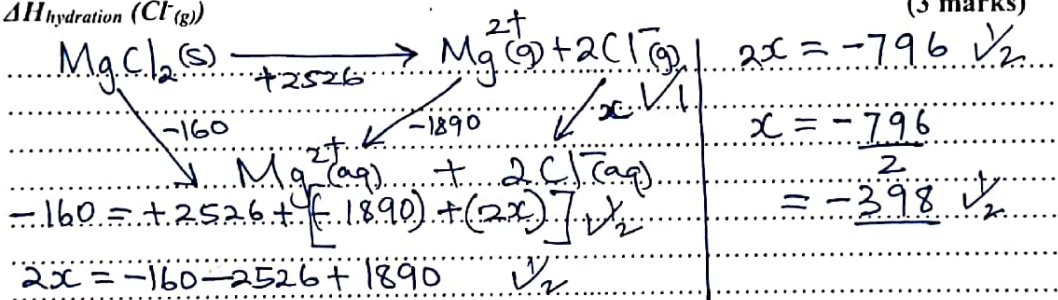 ΔH hydration (Cl⁻(g)) (3 marks)
MgCl₂(s) → Mg²⁺(g) + 2Cl⁻(g)
+2526
-160
-1890
x √1
Mg²⁺(aq) + 2Cl⁻(aq)
-160 = +2526 + [(-1890) + (2x)] √½
2x = -160 - 2526 + 1890 √½
2x = -796 √½
x = -796
2
= -398 √½